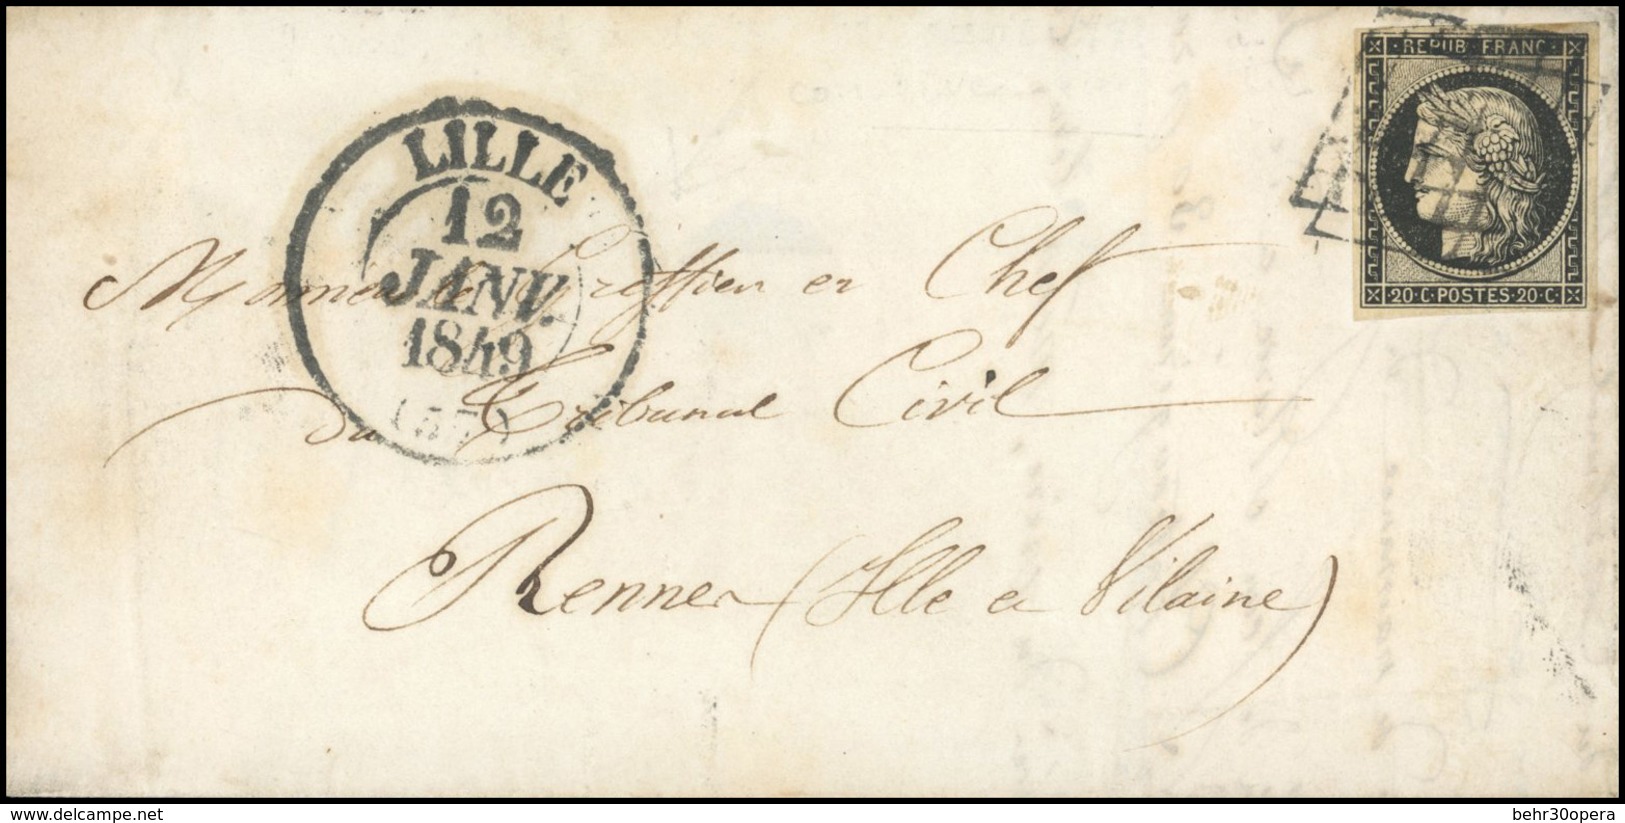 REPUB·FRANC·
20·C·POSTES·20·C·
LILLE
12
JANV.
1849
(57)
Monsieur le Greffier en Chef
du Tribunal Civil
Rennes (Ille et Vilaine)
delcampe.net
behr30opera